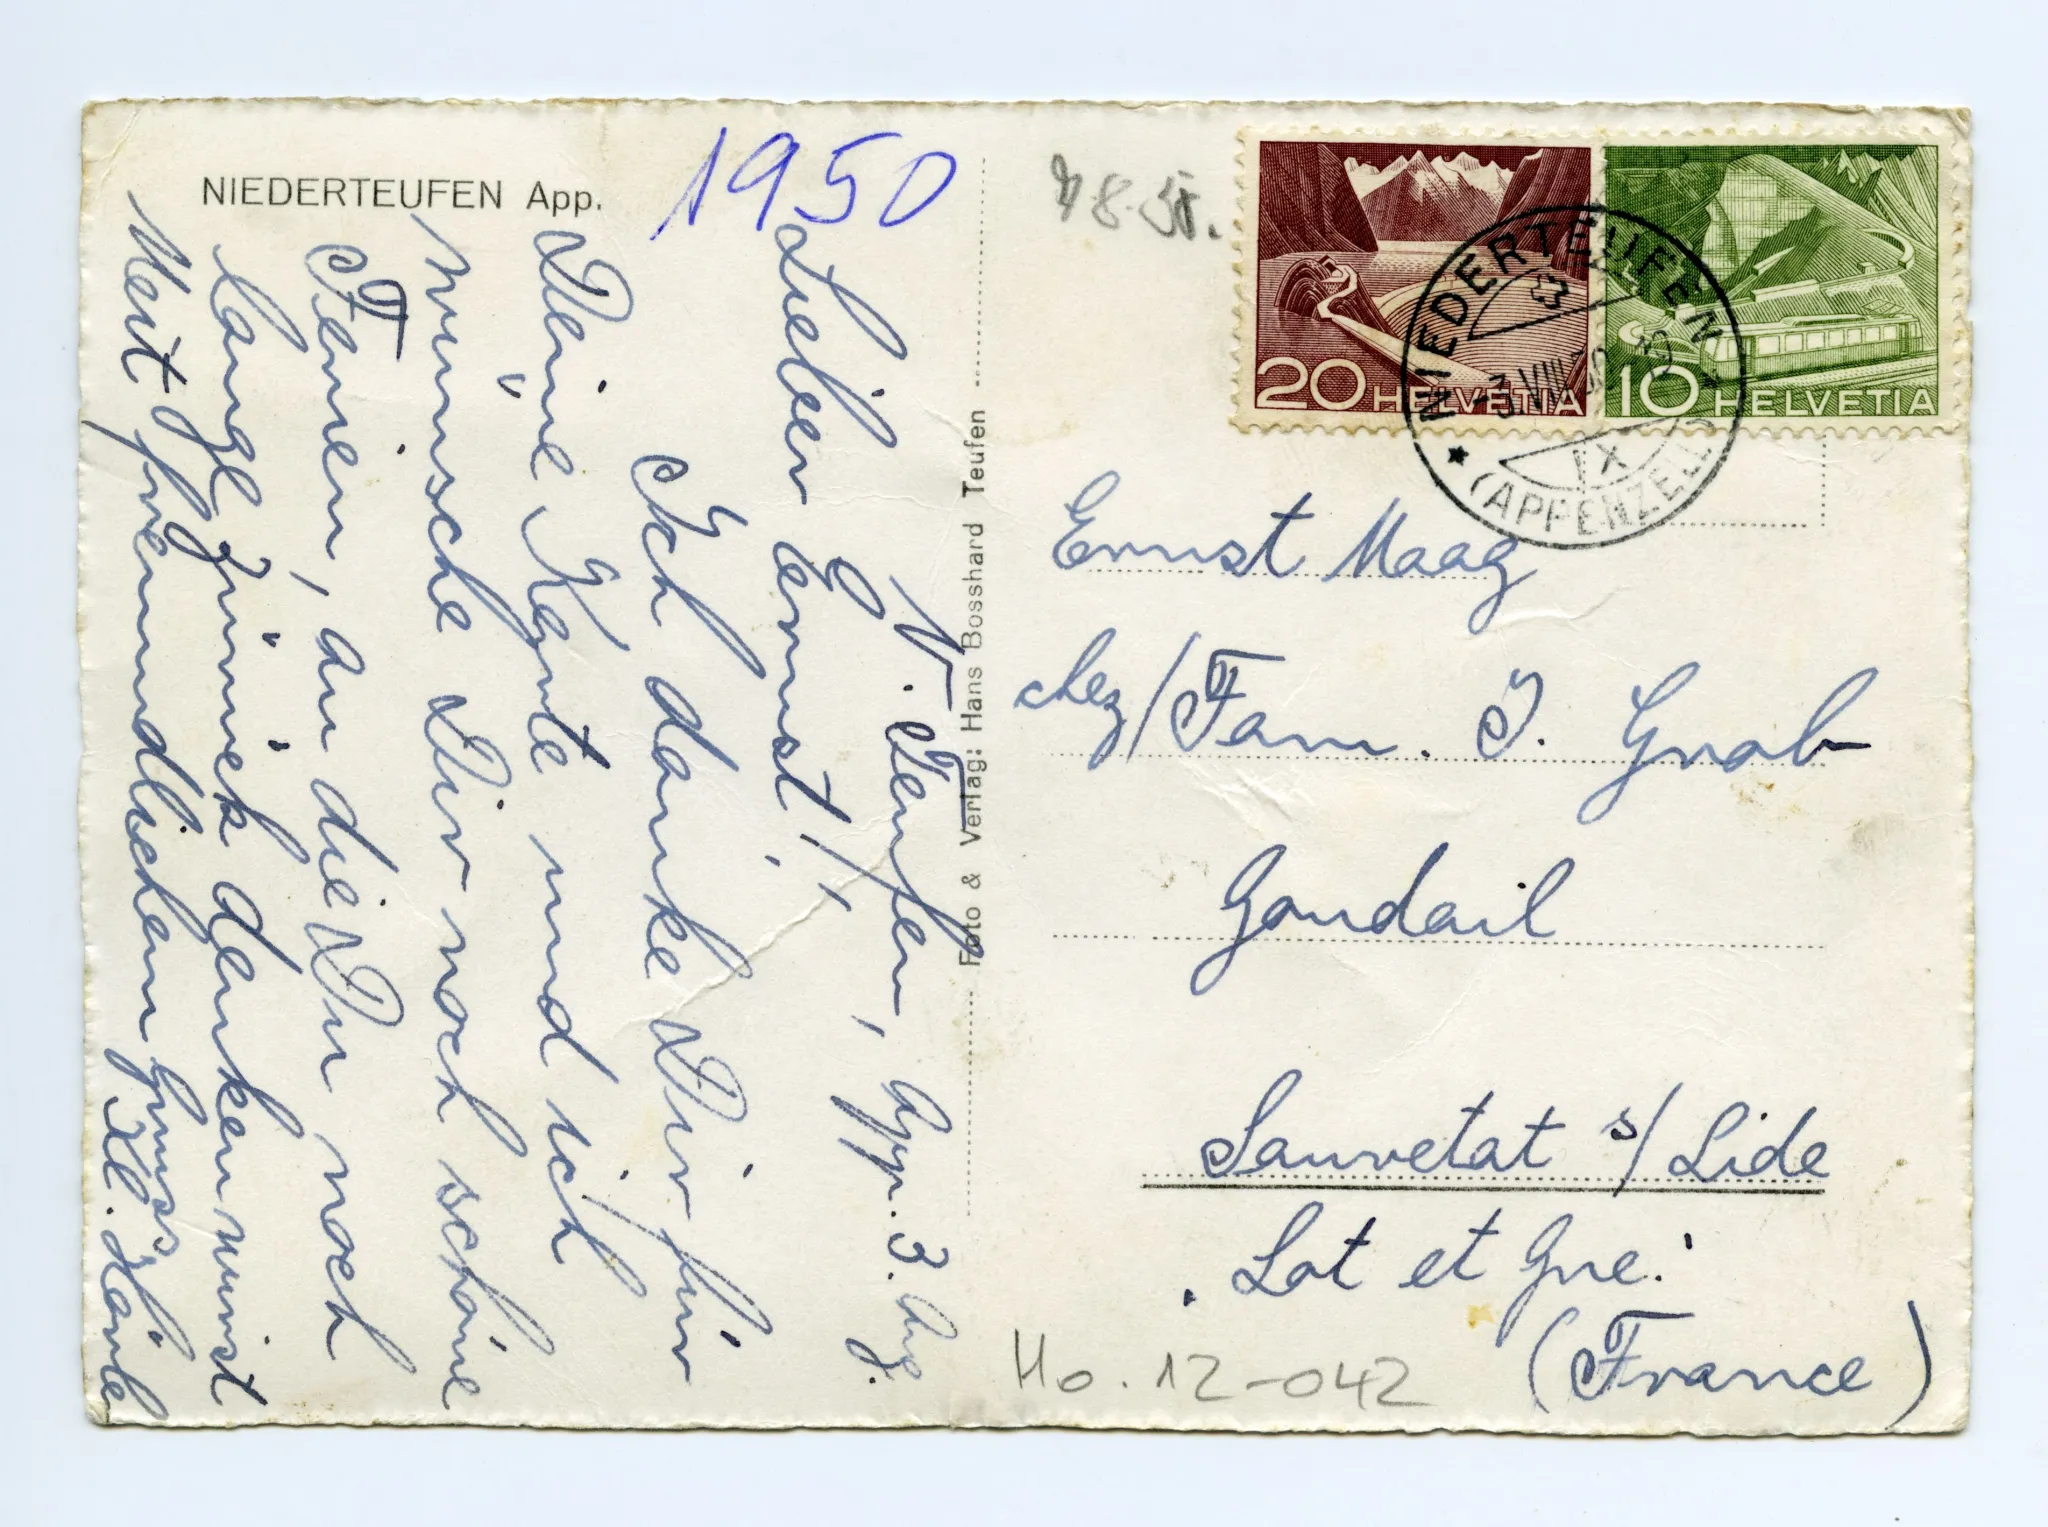 NIEDERTEUFEN App.
1950
N. Teufen, App. 3. Aug.
Lieber Ernst!
Ich danke Dir für
Deine Karte und ich
wünsche Dir noch schöne
Ferien, an die Du noch
lange zurück denken wirst
Mit freundlichem Gruss
Foto & Verlag: Hans Bosshard Teufen
20 HELVETIA
10 HELVETIA
NIEDERTEUFEN
(APPENZELL)
Ernst Maag
chez/Fam. J. Grob
Goudail
Sauvetat s/Lide
Lot et Gne.
(France)
Ho. 12-042